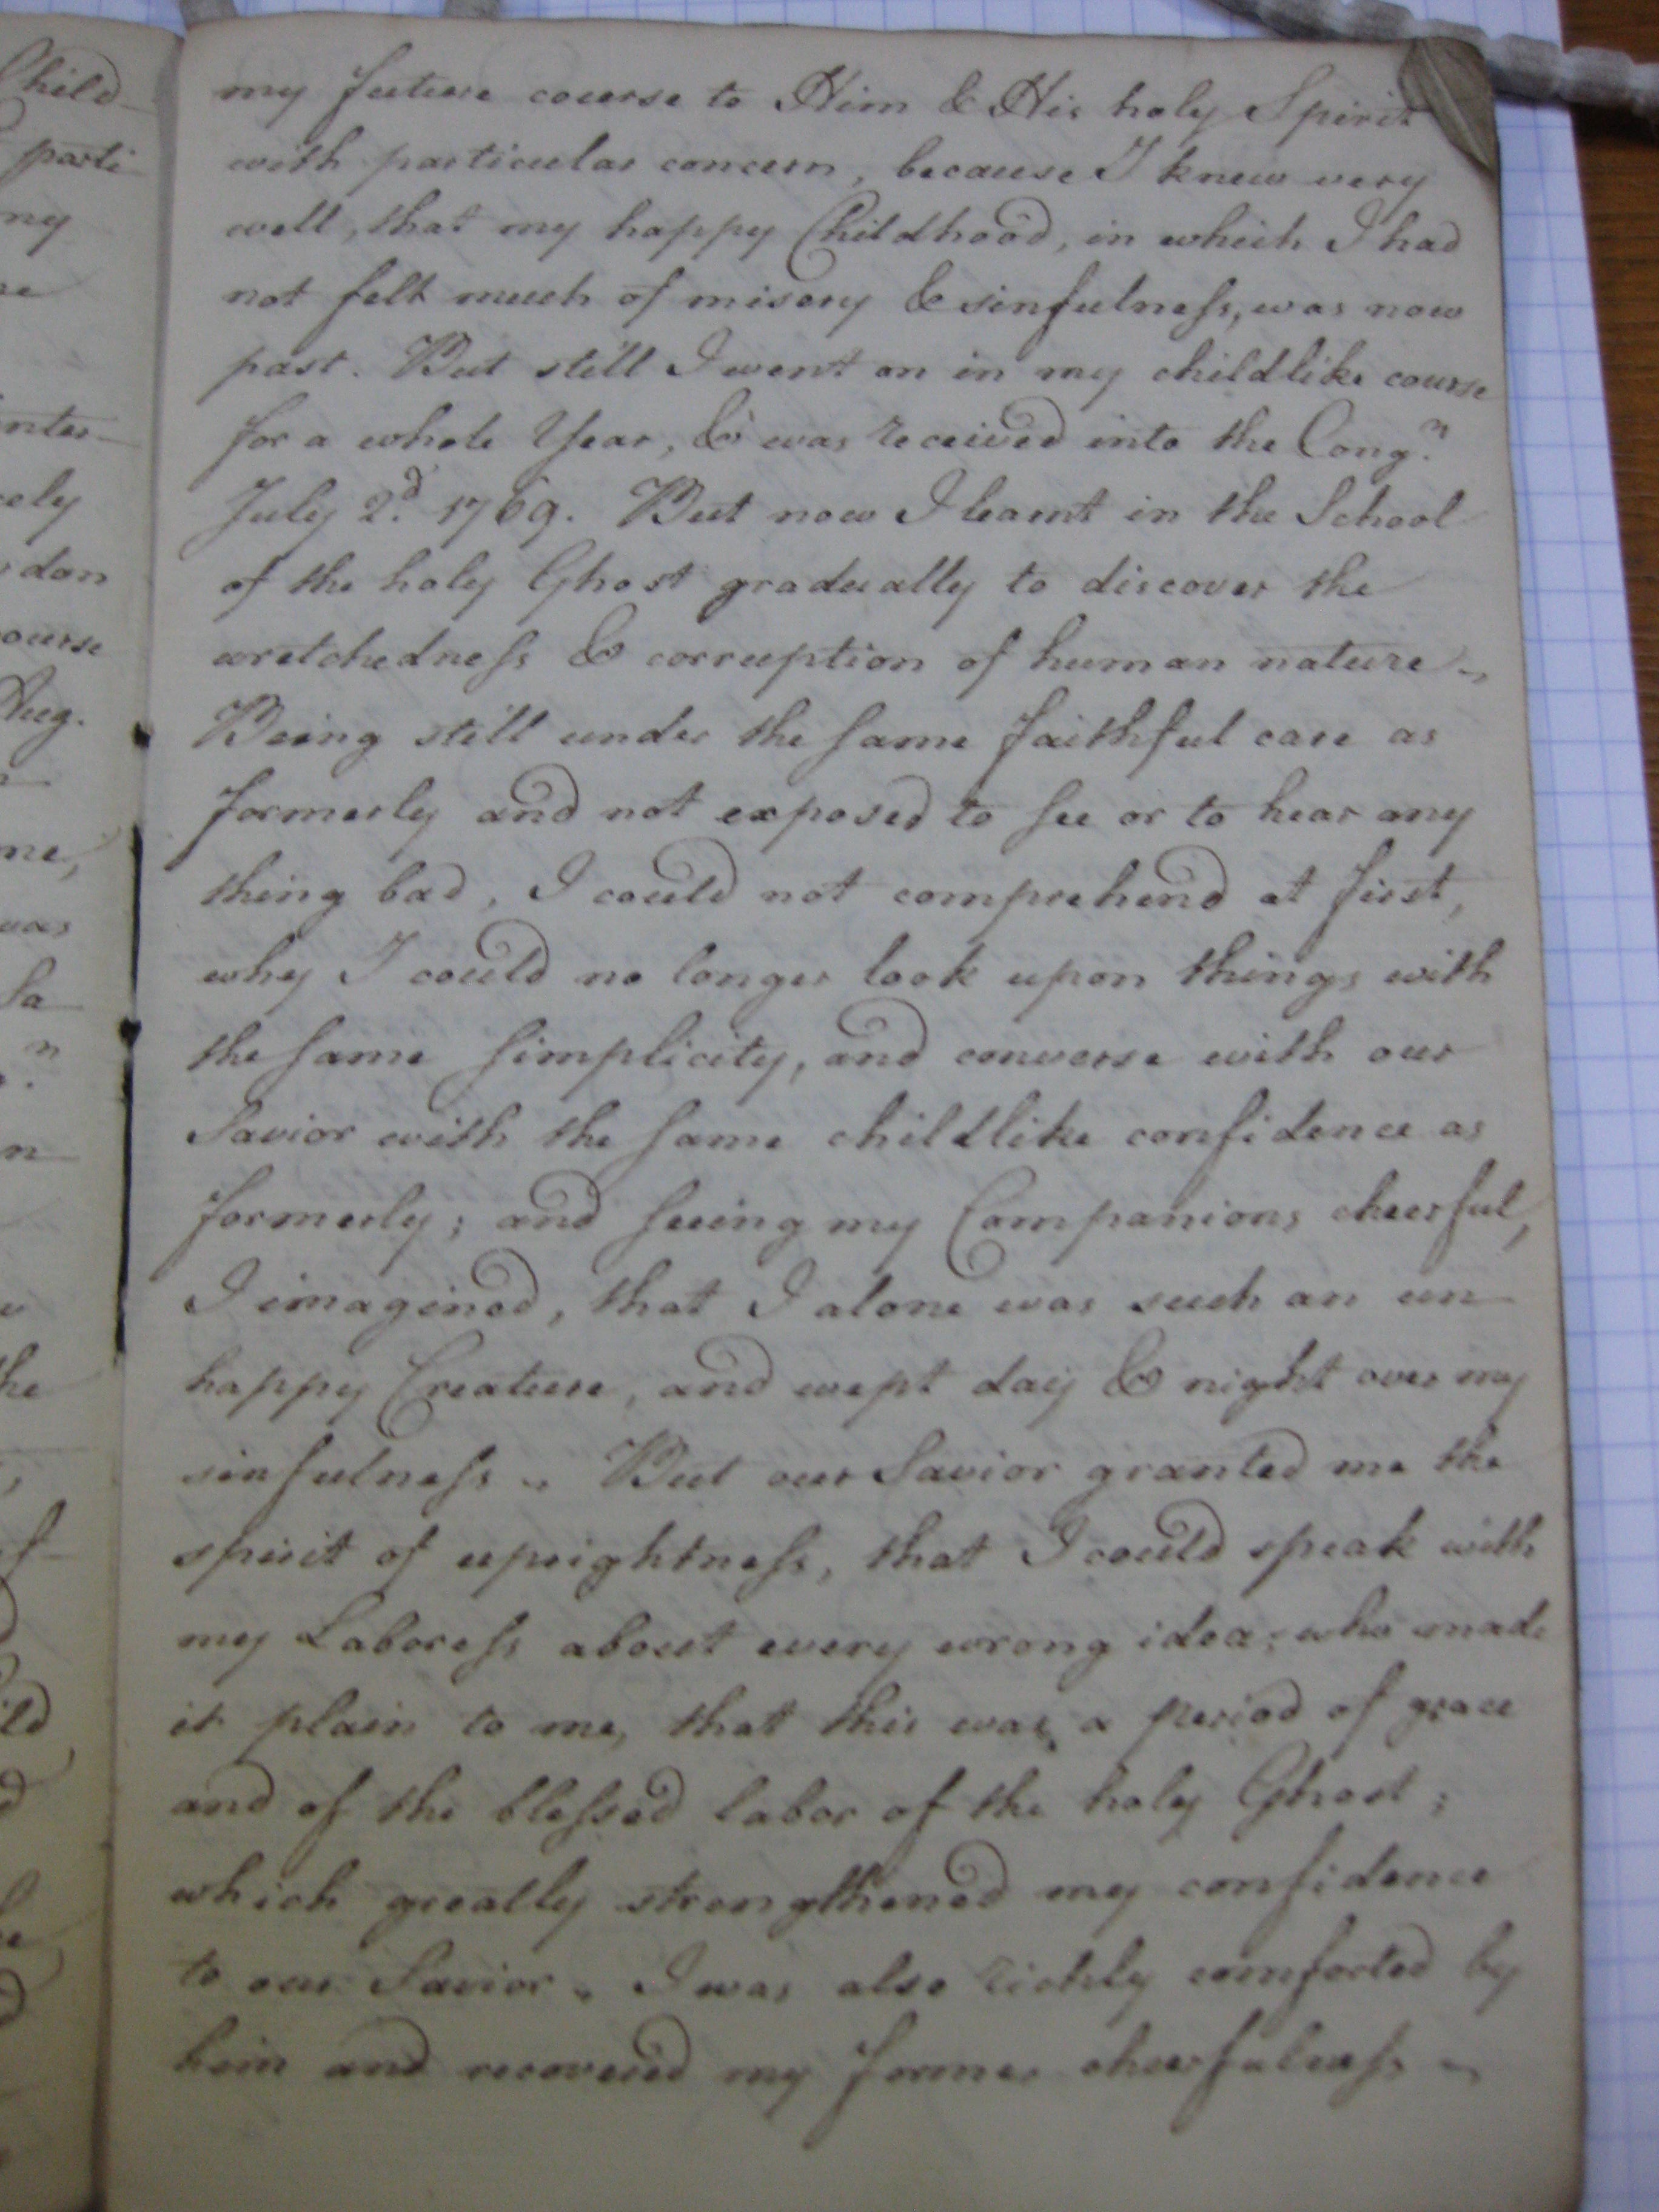 my future course to Him & His holy Spirit
with particular concern, because I knew very
well, that my happy Childhood, in which I had
not felt much of misery & sinfulneſs, was now
past. But still I went on in my childlike course
for a whole Year, & was received into the Cong.n
July 2.d 1769. But now I learnt in the School
of the holy Ghost gradually to discover the
wretchedneſs & corruption of human nature.
Being still under the ſame faithful care as
formerly and not exposed to ſee or to hear any
thing bad, I could not comprehend at first,
why I could no longer look upon things with
the ſame ſimplicity, and converse with our
Savior with the ſame childlike confidence as
formerly; and ſeeing my Companions cheerful,
I imagined, that I alone was such an un-
happy Creature, and wept day & night over my
sinfulneſs. But our Savior granted me the
spirit of uprightneſs, that I could speak with
my Laboreſs about every wrong idea; who made
it plain to me, that this was a period of grace
and of the bleſsed labor of the holy Ghost;
which greatly strengthened my confidence
to our Savior. I was also richly comforted by
him and recovered my former cheerfulneſs.
Child-
parti-
ny
ely
don
ourse
Aug.
me,
was
Sa-
n
he
ild